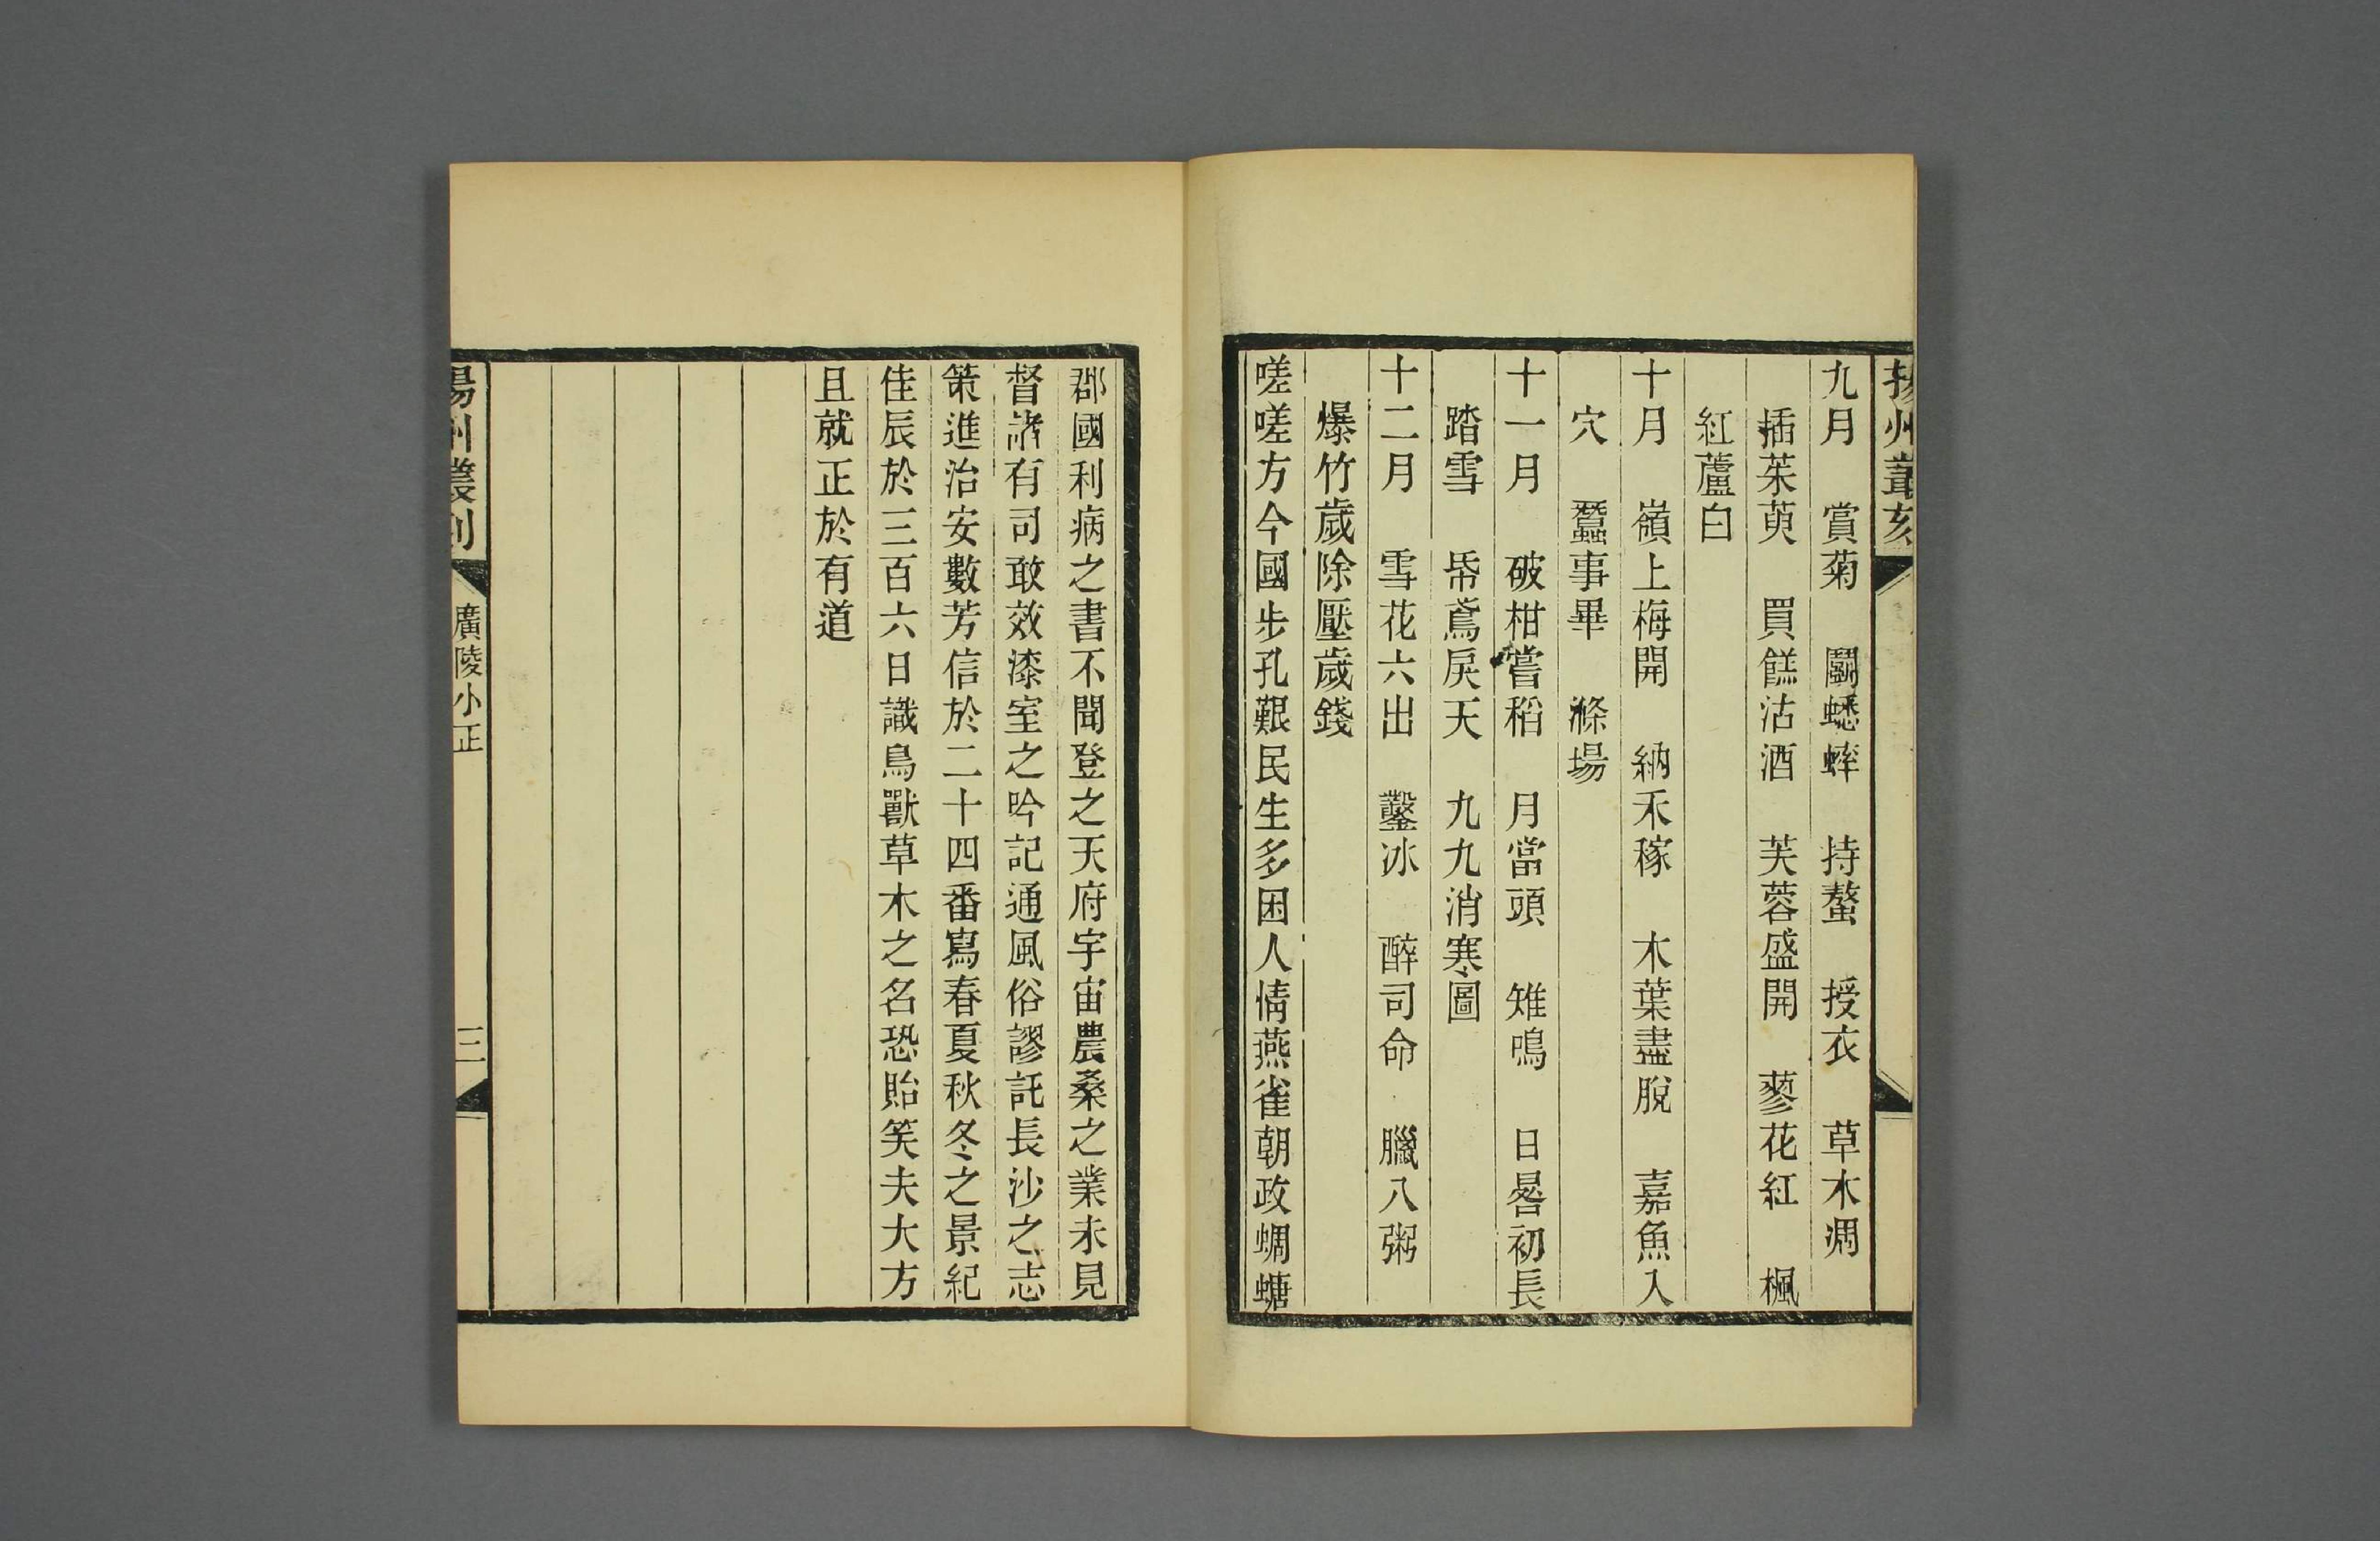 揚州叢刻
九月　賞菊　鬭蟋蟀　持螯　授衣　草木凋
插茱萸　買餻沽酒　芙蓉盛開　蓼花紅　楓
紅蘆白
十月　嶺上梅開　納禾稼　木葉盡脫　嘉魚入
穴　蠶事畢　滌場
十一月　破柑嘗稻　月當頭　雉鳴　日晷初長
踏雪　帋鳶戾天　九九消寒圖
十二月　雪花六出　鑿冰　醉司命　臘八粥
爆竹歲除壓歲錢
嗟嗟方今國步孔艱民生多困人情燕雀朝政蜩螗
郡國利病之書不聞登之天府宇宙農桑之業未見
督諸有司敢效漆室之吟記通風俗謬託長沙之志
策進治安數芳信於二十四番寫春夏秋冬之景紀
佳辰於三百六日識鳥獸草木之名恐貽笑夫大方
且就正於有道
揚州叢刻
廣陵小正
三